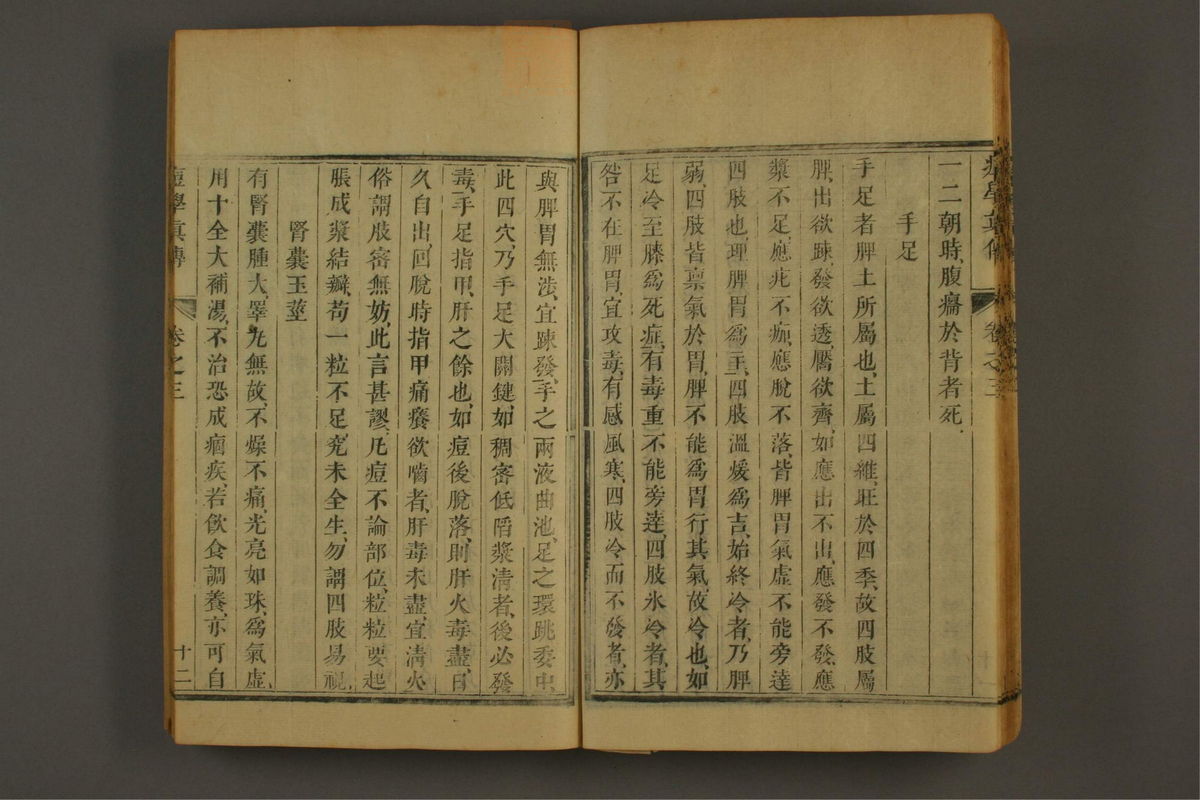 一二朝時、腹痛於背者死、
手足
手足者脾土所屬也、土屬四維、旺於四季、故四肢屬
脾、出欲疎、發欲透、靨欲齊、如應出不出、應發不發、應
漿不足、應疕不痂、應脫不落、皆脾胃氣虛不能旁達
四肢也、理脾胃爲主、四肢溫煖爲吉、始終冷者、乃脾
弱、四肢皆禀氣於胃、脾不能爲胃行其氣、故冷也、如
足冷至膝爲死症、有毒重不能旁達、四肢氷冷者、其
咎不在脾胃、宜攻毒、有感風寒、四肢冷而不發者、亦
與脾胃無涉、宜疎發、手之兩液曲池、足之環跳委中、
此四穴、乃手足大關鍵、如稠密低陷漿清者、後必發
毒、手足指甲、肝之餘也、如痘後脫落、則肝火毒盡、日
久自出、回脫時指甲痛癢欲嚙者、肝毒未盡、宜清火、
俗謂肢密無妨、此言甚謬、凡痘不論部位、粒粒要起
脹成漿結瓣、苟一粒不足、究未全生、勿謂四肢易視、
腎囊玉莖
有腎囊腫大、睪丸無故、不燥不痛、光亮如珠、爲氣虛、
用十全大補湯、不治恐成痼疾、若飲食調養、亦可自
痘學眞傳 卷之三 十二